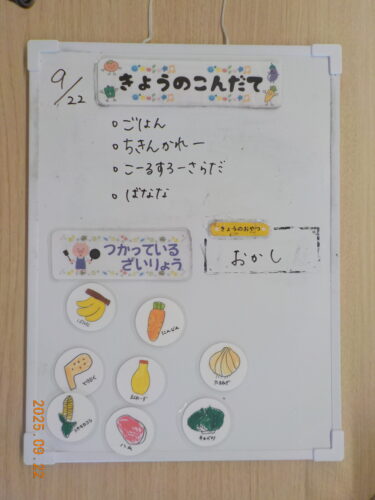 9/22
きょうのこんだて
○ごはん
○ちきんかれー
○こーるすろーさらだ
○ばなな
つかっている
ざいりょう
きょうのおやつ
おかし
ばなな
にんじん
とりにく
たまねぎ
とうもろこし
はむ
きゃべつ
2025.09.22